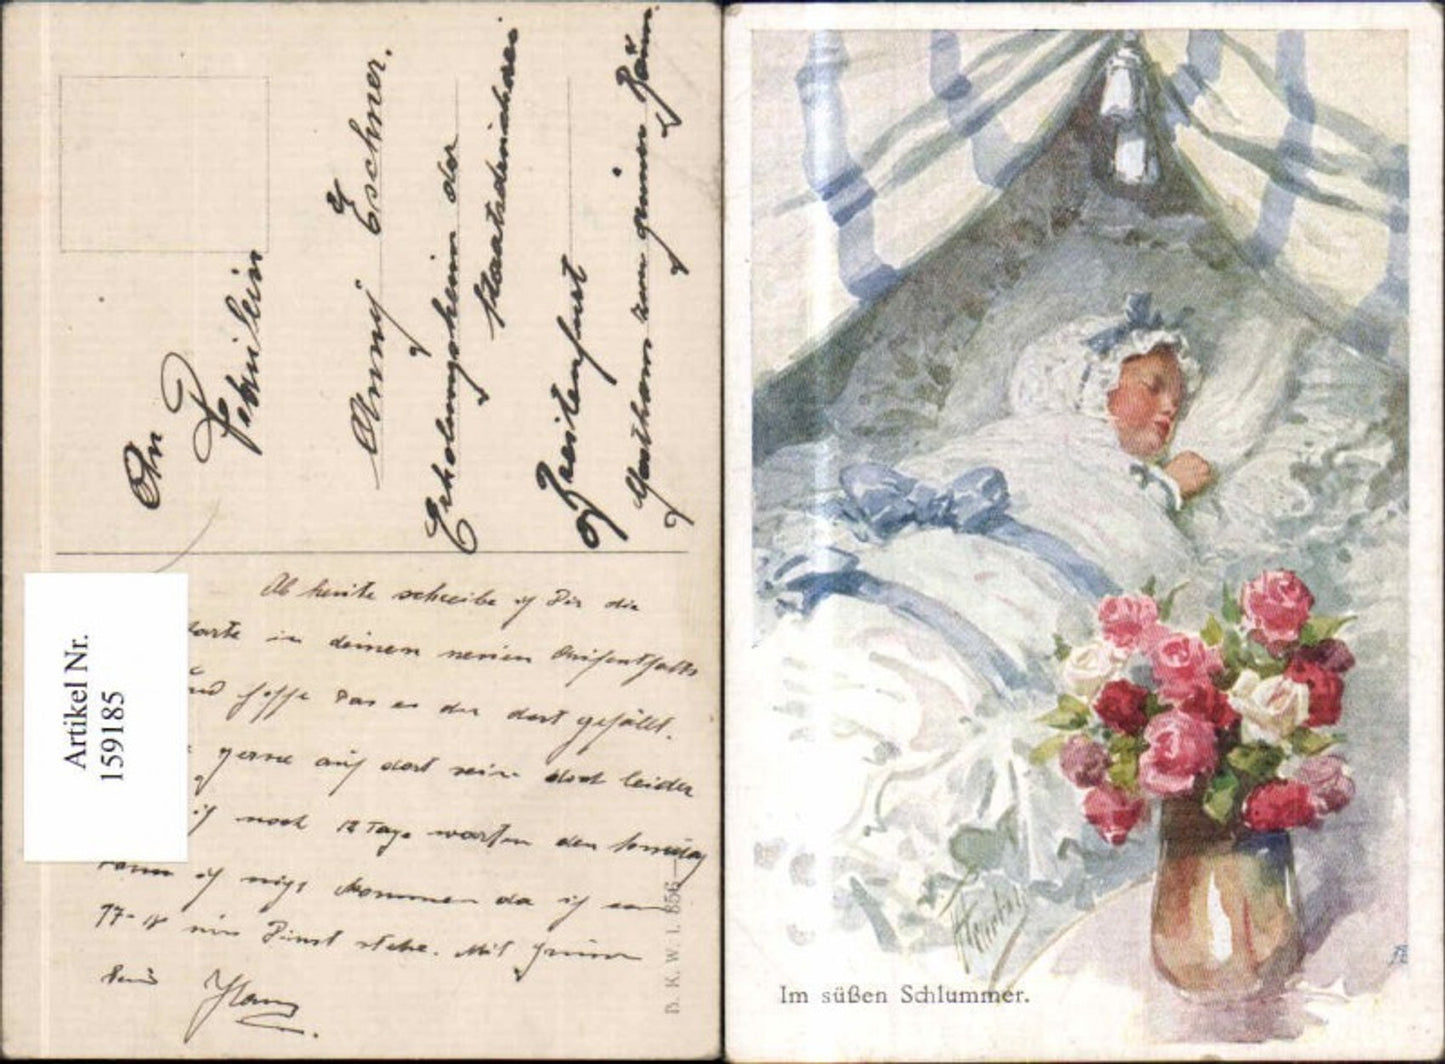 An
Fräulein
Anny Eschner.
Erholungsheim der
Staatsbeamten
Breitenfurt
Gasthaus zum grünen Baum
Ab heute schreibe ich Dir die
Karte in deinem neuen
und hoffe das es dir dort gefällt.
gerne auf dort sein doch leider
ich noch 12 Tage warten den Sonntag
kann ich nicht kommen da ich am
17-18 im Dienst stehe. Mit
Hans
B. K. W. I. 856
Artikel Nr.
159185
Im süßen Schlummer.